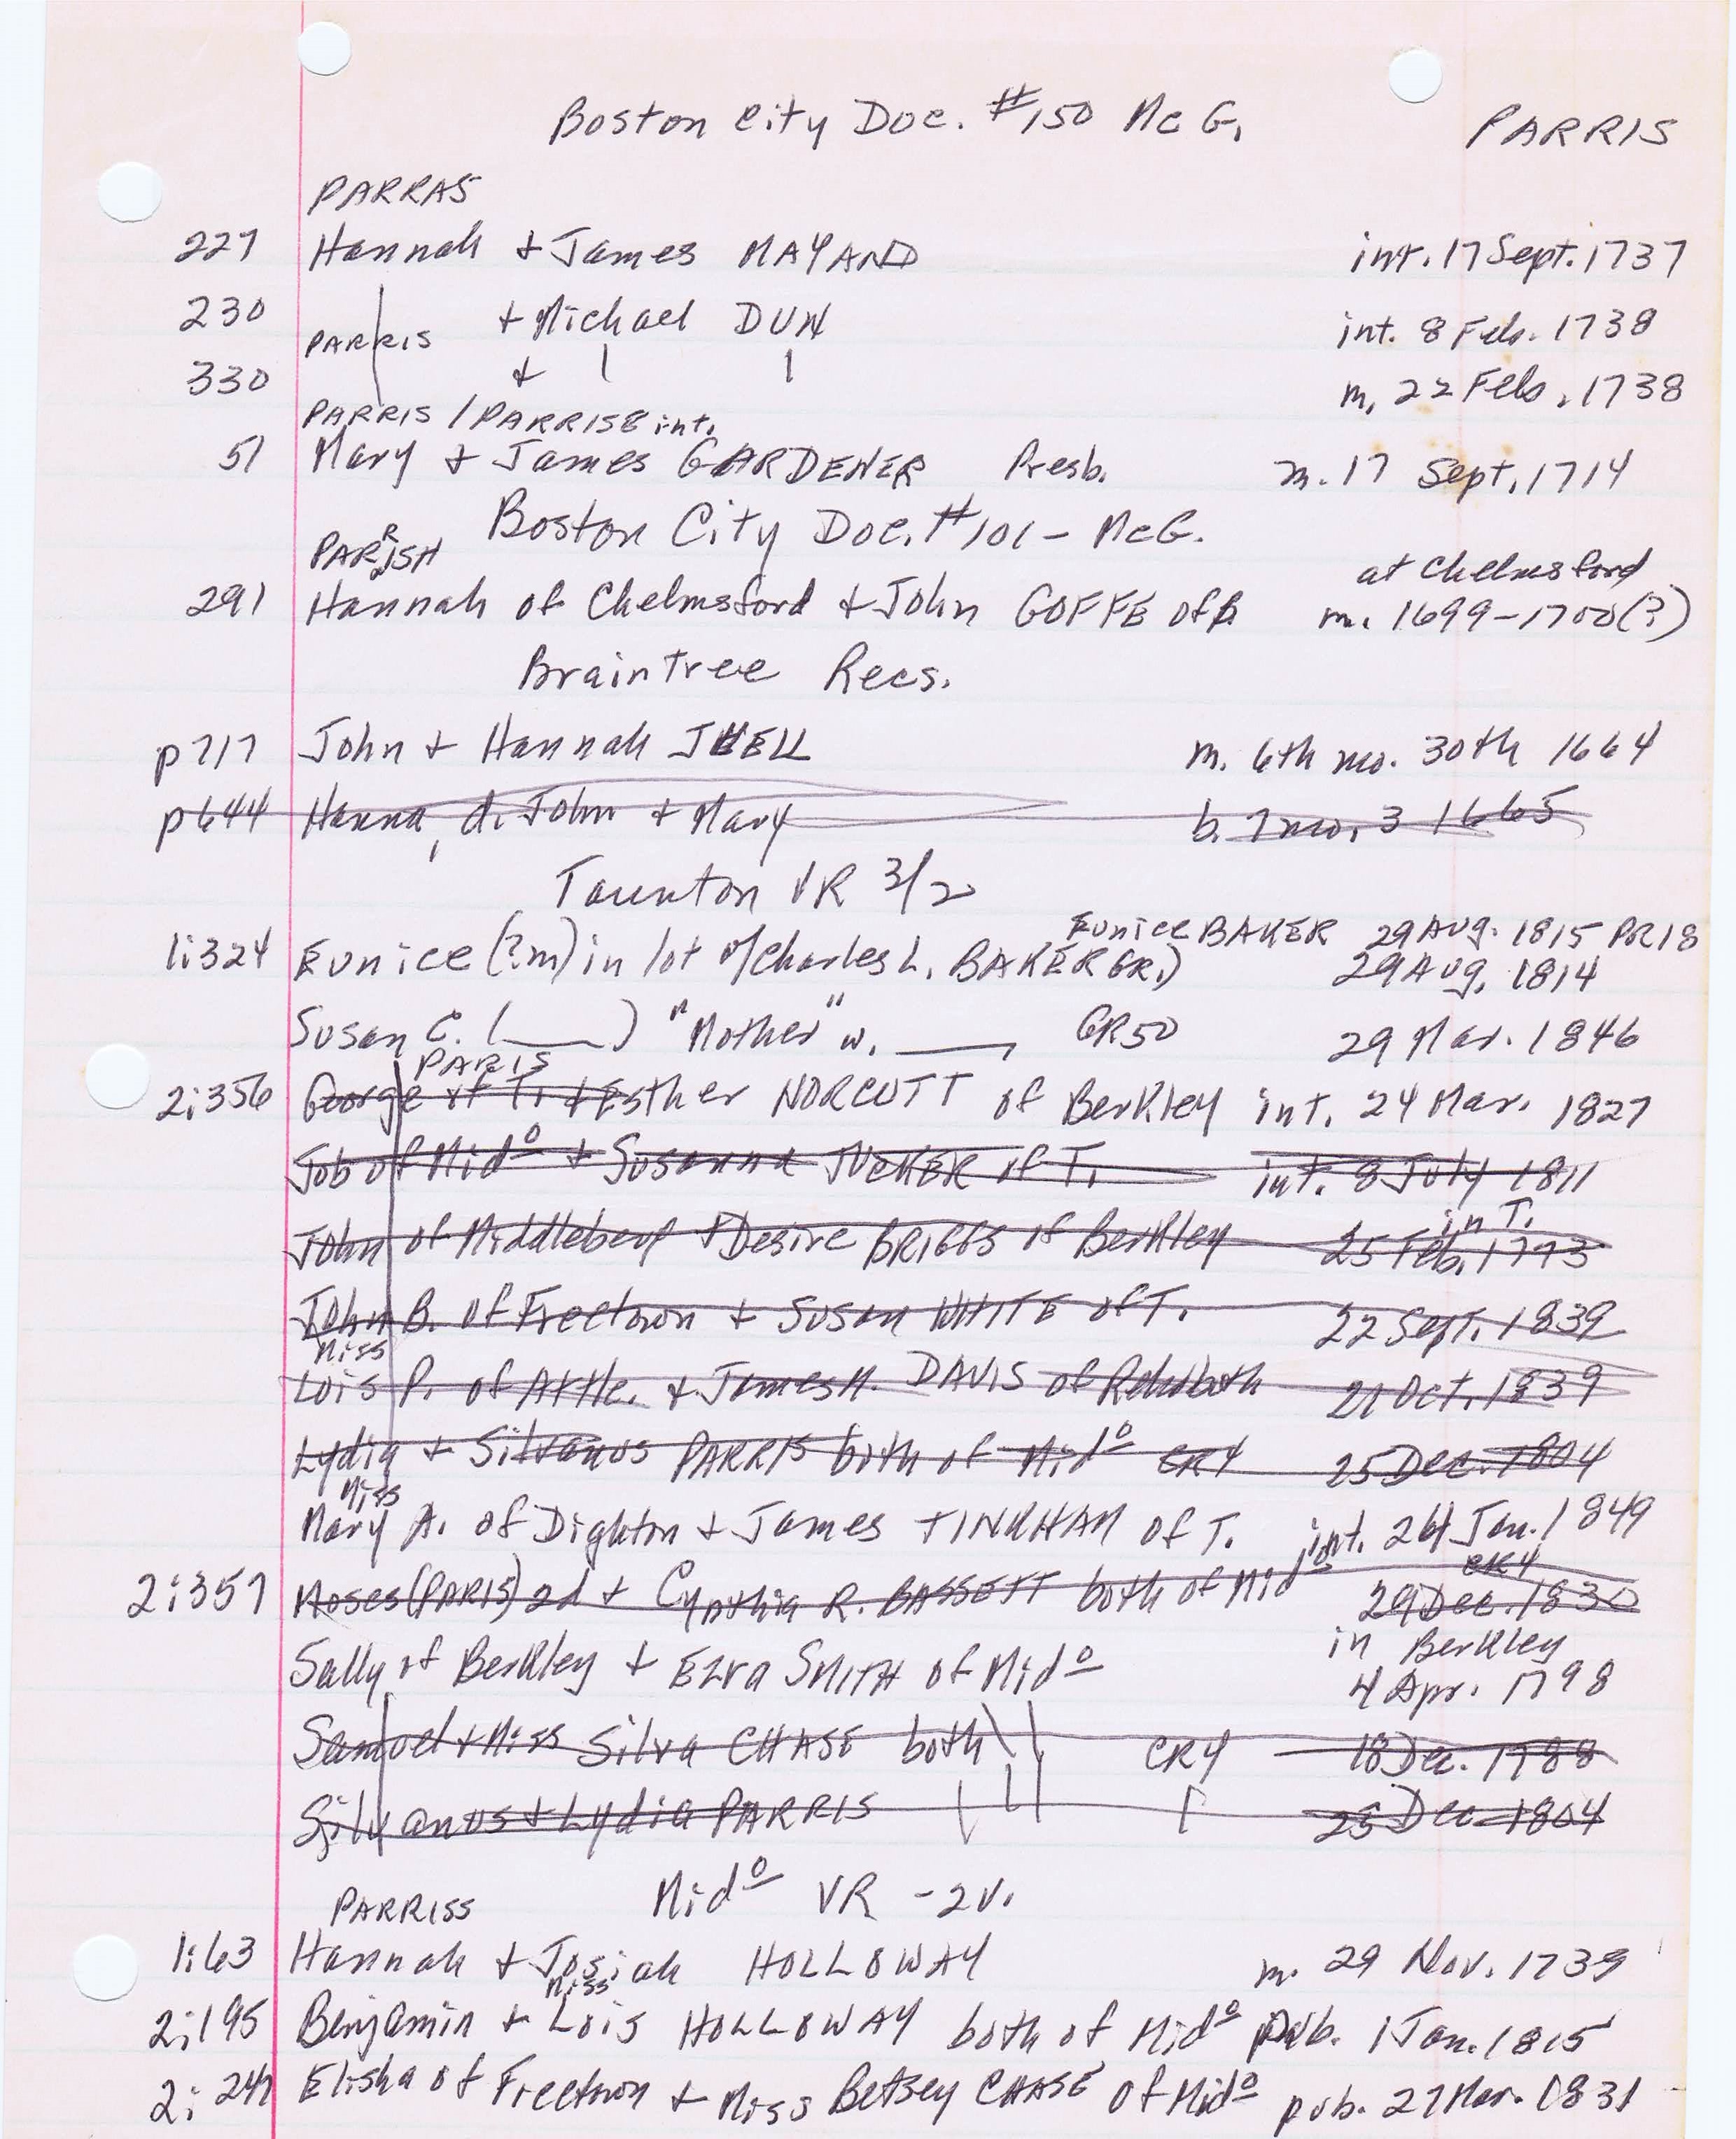 Boston City Doc. #150 McG. PARRIS
PARRAS
227 Hannah + James MAYAND int. 17 Sept. 1737
230 + Michael DUN int. 8 Feb. 1738
PARRIS
330 + | | m. 22 Feb. 1738
PARRIS / PARRISE int.
51 Mary + James GARDENER Presb. m. 17 Sept. 1714
Boston City Doc. #101 - McG.
PARRISH
at Chelmsford
291 Hannah of Chelmsford + John GOFFE of B. m. 1699-1700(?)
Braintree Recs.
p717 John + Hannah JUELL m. 6th mo. 30th 1664
p644 Hanna, d. John + Mary b. 7 mo. 3 1665
Taunton VR 3/2
Eunice BAKER 29 Aug. 1815 PR18
1:324 Eunice (?m) in lot of Charles L. BAKER GR.) 29 Aug. 1814
Susan C. (___) "Mother" w. ___, GR50 29 Mar. 1846
PARIS
2:356 George of T. + Esther NORCUTT of Berkley int. 24 Mar. 1827
Job of Mido + Susanna TUCKER of T. int. 8 July 1811
in T.
John of Middlebery + Desire BRIGGS of Berkley 25 Feb. 1773
John B. of Freetown + Susan WHITE of T. 22 Sept. 1839
Miss
Lois P. of Attle. + James H. DAVIS of Rehoboth 21 Oct. 1839
Lydia + Silvanus PARRIS both of Mido CR4 25 Dec. 1804
Miss
Mary A. of Dighton + James TINKHAM of T. int. 26 Jan. 1849
CR4
2:357 Moses (PARIS) 2d + Cynthia R. BASSETT both of Mido 29 Dec. 1830
in Berkley
Sally of Berkley + Ezra SMITH of Mido 4 Apr. 1798
Samuel + Miss Silva CHASE both CR4 18 Dec. 1788
Silvanus + Lydia PARRIS 25 Dec. 1804
Mido VR - 2v.
PARRISS
1:63 Hannah + Josiah HOLLOWAY m. 29 Nov. 1739
Miss
2:195 Benjamin + Lois HOLLOWAY both of Mido pub. 1 Jan. 1815
2:247 Elisha of Freetown + Miss Betsey CHASE of Mido pub. 27 Mar. 1831